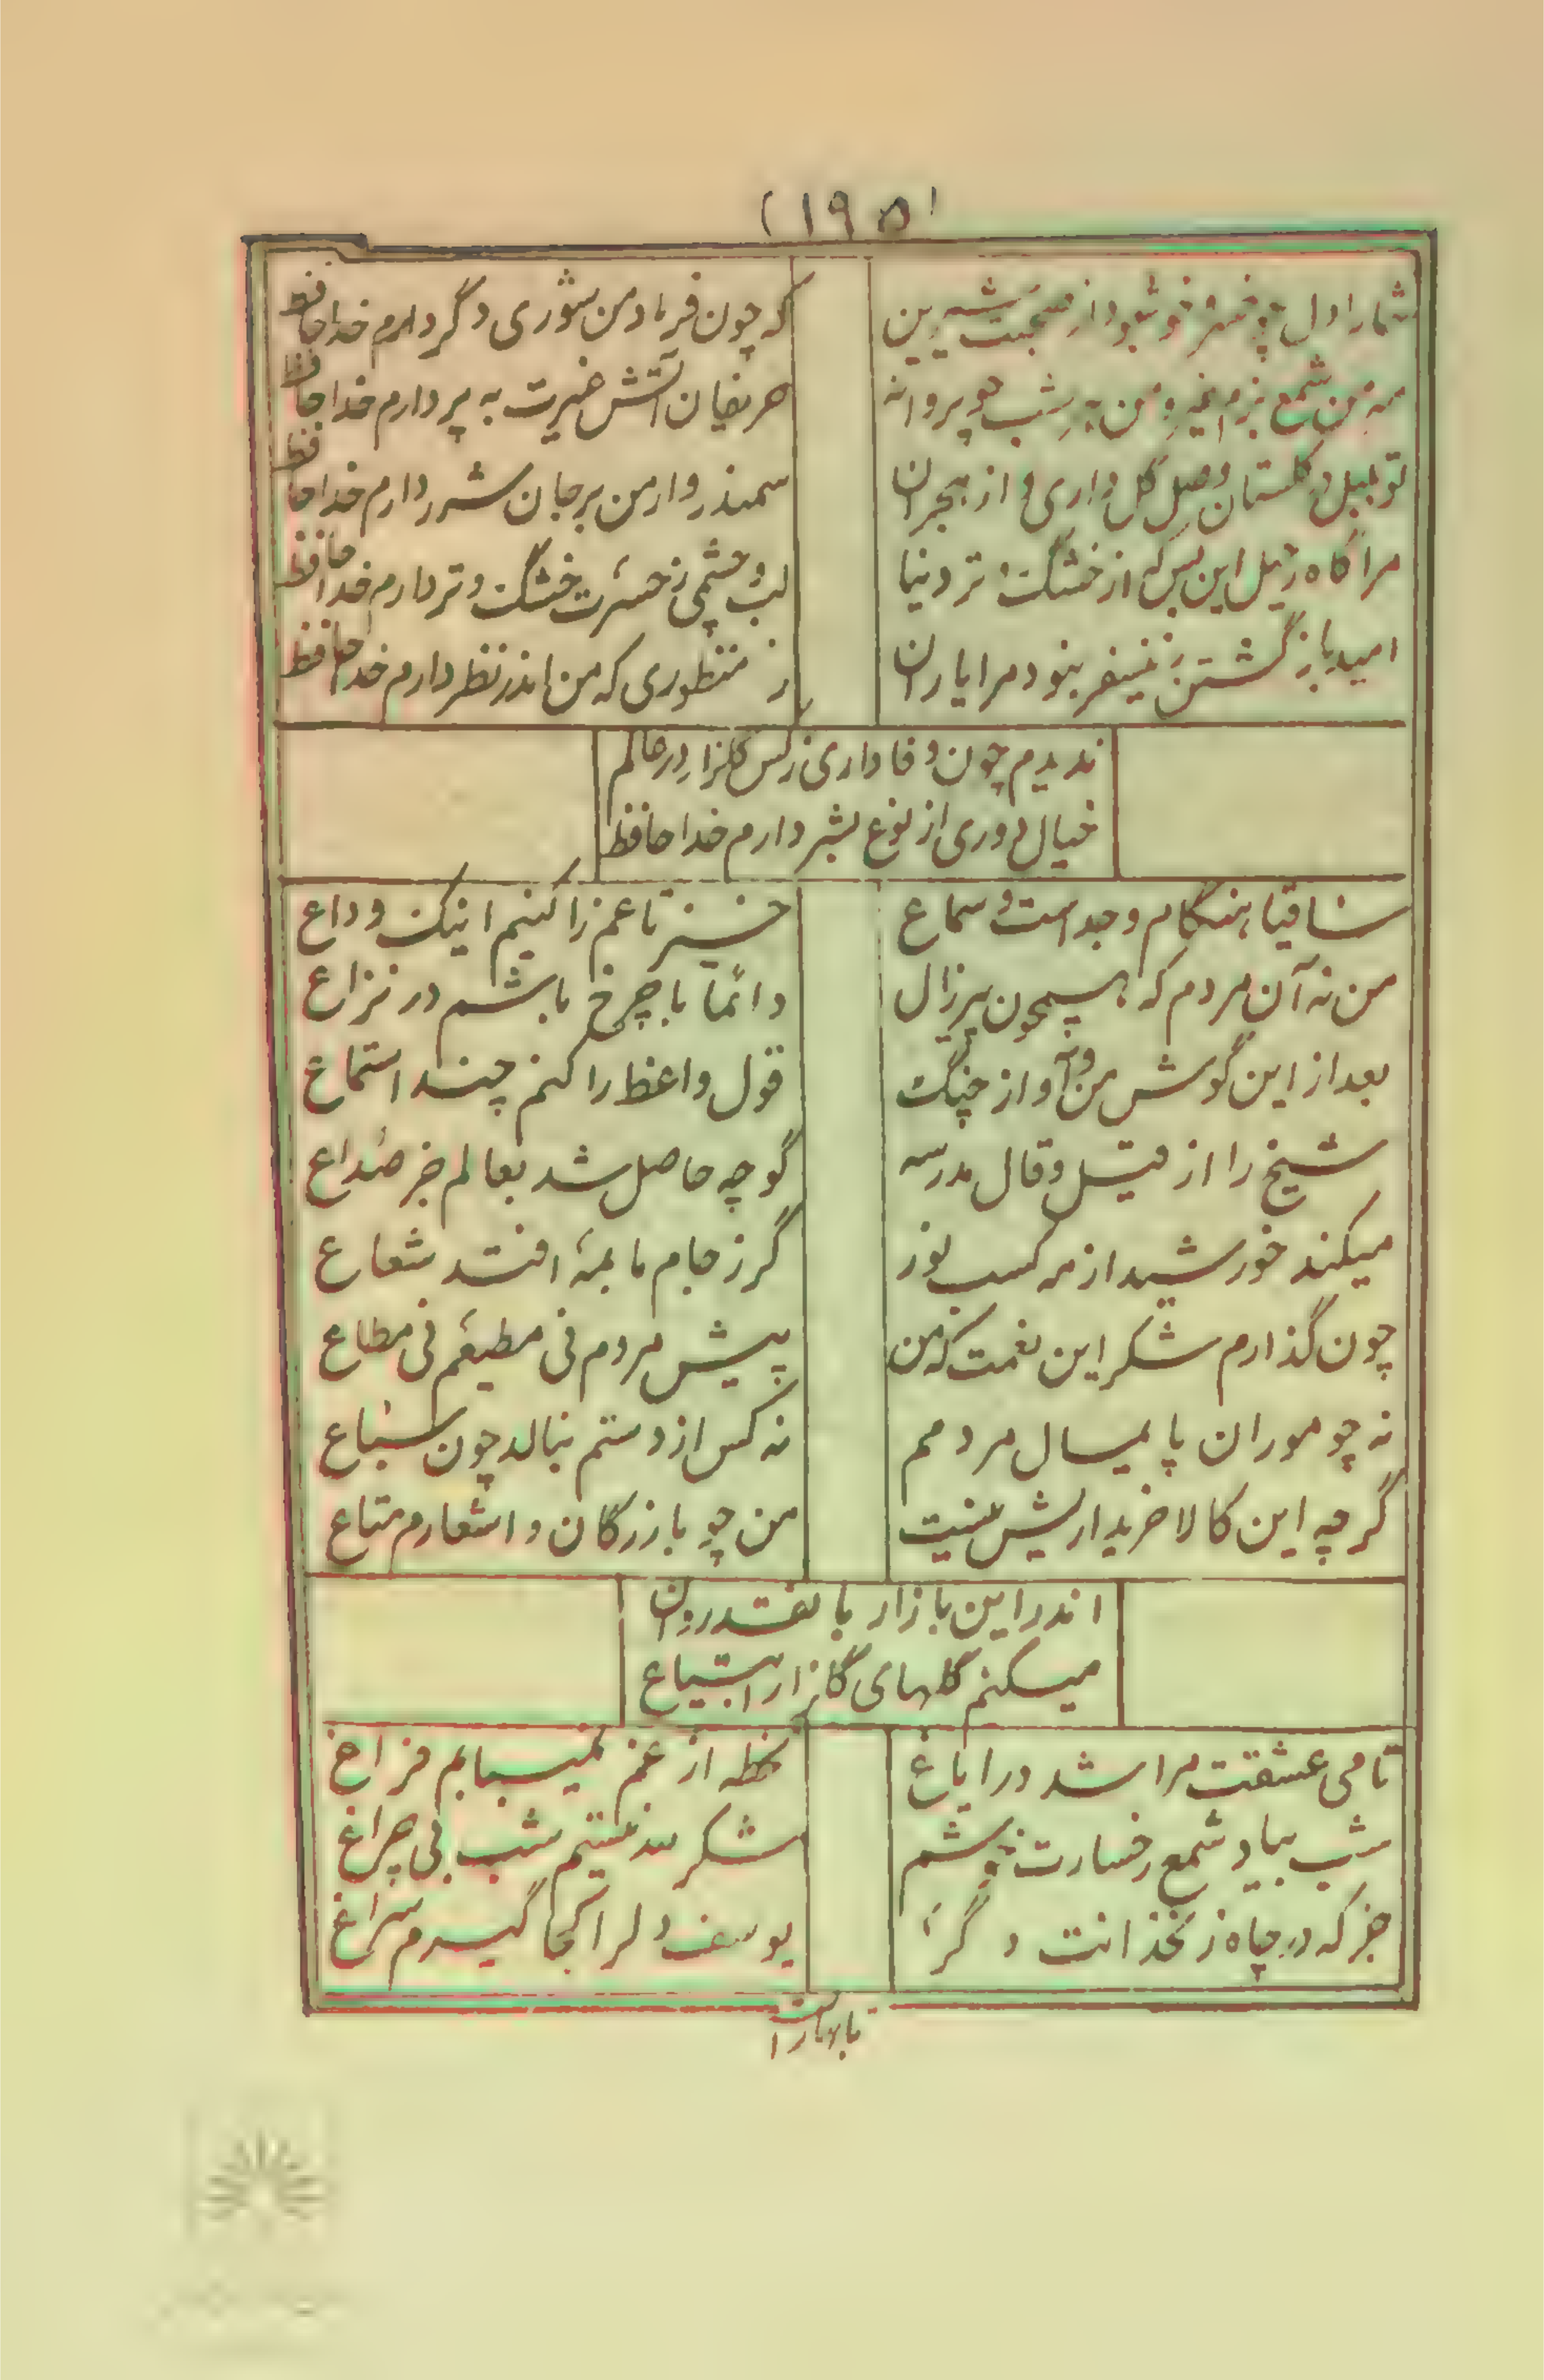 (۱۹۵)
شما را دل چو خسرو خوش بود از صحبت شیرین
که چون فرهاد من شوری دگر دارم خدا حافظ
مه من شمع بزم غیر و من هر شب چو پروانه
حریفان آتش غیرت به پر دارم خدا حافظ
تو بلبل در گلستان وصل گل داری و از هجران
سمندروار من بر جان شرر دارم خدا حافظ
مرا گاه رحیل این بس که از خشک و تر دنیا
لب و چشمی ز حسرت خشک و تر دارم خدا حافظ
امید باز گشتن زین سفر نبود مرا یاران
از منظوری که من اندر نظر دارم خدا حافظ
ندیدم چون وفاداری ز کس گلزار در عالم
خیال دوری از نوع بشر دارم خدا حافظ
ساقیا هنگام وجد است و سماع
خیز تا غم را کنیم اینک وداع
من نه آن مردم که همچون پیرزال
دائما با چرخ باشم در نزاع
بعد از این گوش من و آواز چنگ
قول واعظ را کنم چند استماع
شیخ را از قیل و قال مدرسه
گو چه حاصل شد بعالم جز صداع
میکند خورشید از مه کسب نور
گر ز جام ما بمه افتد شعاع
چون گذارم شکر این نعمت که من
پیش مردم نی مطیعم نی مطاع
نه چو موران پایمال مردمم
نه کس از دستم بنالد چون سباع
گرچه این کالا خریداریش نیست
من چو بازرگان و اشعارم متاع
اندر این بازار با نقد روان
میکنم گلهای گلزار ابتیاع
تا می عشقت مرا شد در ایاغ
لحظه از غم نمییابم فراغ
شب بیاد شمع رخسارت خوشم
شکر لله نیستم شب بی چراغ
جز که در چاه زنخدانت دگر
یوسف دل را کجا گیرم سراغ
با بهار است